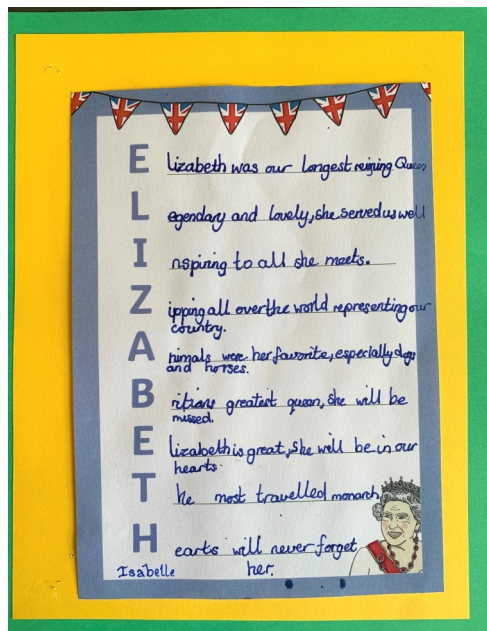 Elizabeth was our longest reigning Queen
Legendary and lovely, she served us well
Inspiring to all she meets.
Zipping all over the world representing our
country.
Animals were her favorite, especially dogs
and horses.
Britians greatest queen, she will be
missed.
Elizabeth is great, she will be in our
hearts.
The most travelled monarch
Hearts will never forget
her.
Isabelle